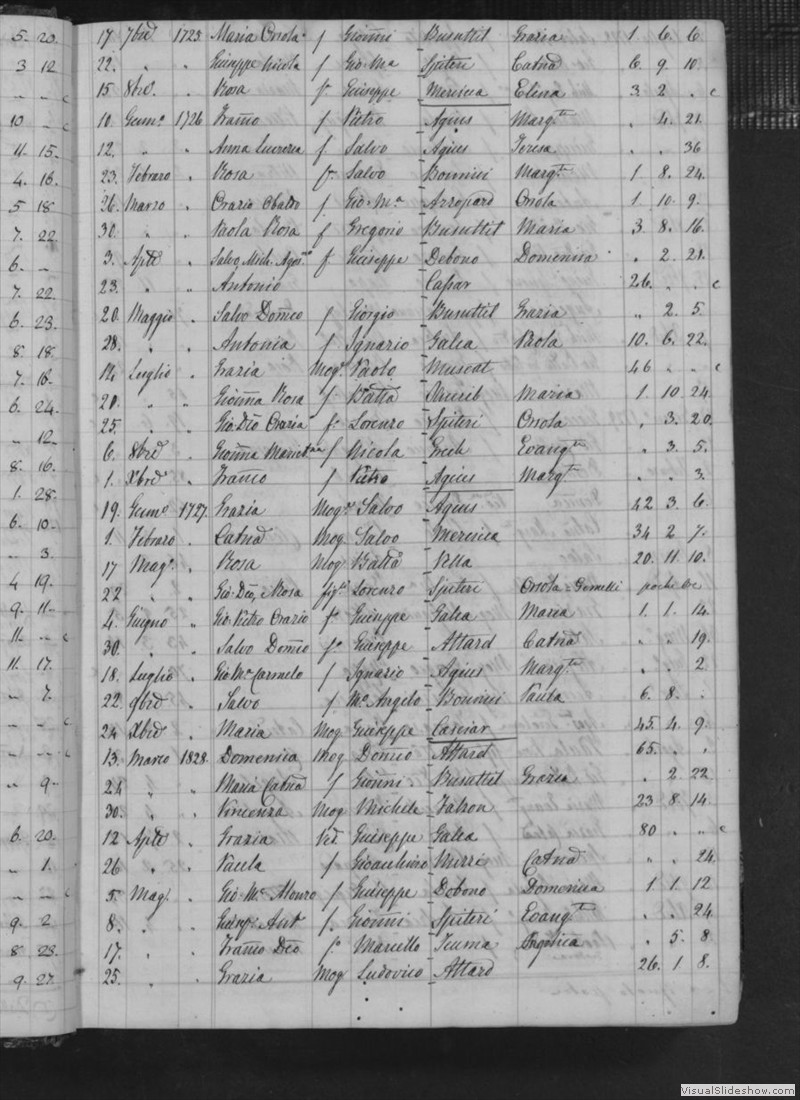 5. 20. 17 7bre 1725 Maria Orsola f Gionni Busuttil Grazia 1. 6. 6.
3 12 22. " " Giuseppe Nicola f Gio: Ma Spiteri Catna 6. 9. 10.
" " c 15 8bre. " Rosa f. Giuseppe Mercieca Elena 3. 2. " c
10 " 10. Genno. 1726 Franco f Pietro Agius Margta " 4. 21.
11. 15. 12. " " Anna Lucrezia f Salvo Agius Teresa " " 36
4. 16. 23. Febraro " Rosa f. Salvo Bonnici Margta 1 8. 24.
5 18 26. Marzo " Orazio f Gio. Ma Azzopard Orsola 1. 10. 9.
7. 22. 30. " " Paola Rosa f Gregorio Busuttil Maria 3. 8. 16.
6. " 3. Aple " Salvo Mich. f Giuseppe Debono Domenica " 2. 21.
7. 22. 23. " " Antonio Caspar 26. " " c
6. 23. 20. Maggio " Salvo Domco f Giorgio Busuttil Grazia " 2. 5.
8. 18. 28. " " Antonia f Ignazio Galea Paola 10. 6. 22.
7. 16. 14. Luglio " Grazia Moge. Paolo Muscat 46 " " c
6. 24. 21. " " Gionna Rosa f Batta Maria 1. 10. 24
" 12. 25. " " Gio: Orazio f. Lorenzo Spiteri Orsola " 3. 20.
8. 16. 6. 8bre " Gionna f Nicola Ercih Evangta " 3. 5.
1. 28. 1. Xbre " Franco f Pietro Agius Margta " " 3.
6. 10. 19. Genno 1727. Grazia Moge Salvo Agius 42 3. 6.
" 3. 1. Febraro " Catna Mog Salvo Mercieca 34 2 7.
17 Mago. " Rosa Mog Batta Vella 20. 11. 10.
4 19. 22 " " Gio: e Rosa Lorenzo Spiteri Orsola = Gemelli poche ore
9. 11. 4. Giugno " Gio: Pietro Orazio f. Giuseppe Galea Maria 1. 1. 14.
11. " c 30. " " Salvo Domco f. Giuseppe Attard Catna " " 19.
11. 17. 18. Luglio " Gio: Ma Carmelo f Ignazio Agius Margta " " 2
" 7. 22. 9bre " Salvo f Mo. Angelo Bonnici Paula 6. 8. "
" " c 24 Xbre " Maria Mog Giuseppe Casciar 45. 4. 9.
" " c 13. Marzo 1828 Domenica Mog Domco Attard 65. " "
" 9. 24 " " Maria Catna f Gionni Busuttil Grazia " 2. 22
30. " " Vincenza Mog Michele Falzon 23 8. 14.
6. 20. 12 Aple " Grazia Ved. Giuseppe Galea 80 " " c
" 1. 26 " " Paula f Gioacchino Mizzi Catna " " 24.
" " c 5. Mag. " Gio: Ma Alonzo f Giuseppe Dobono Domenica 1. 1. 12
9. 2 8. " " Giusp: Ant f. Gionni Spiteri Evangta " " 24
8 23. 17. " " Franco f. Marcello Scuma Angelica " 5. 8.
9. 27. 25. " " Grazia Mog Ludovico Attard 26. 1 8.
VisualSlideshow.com